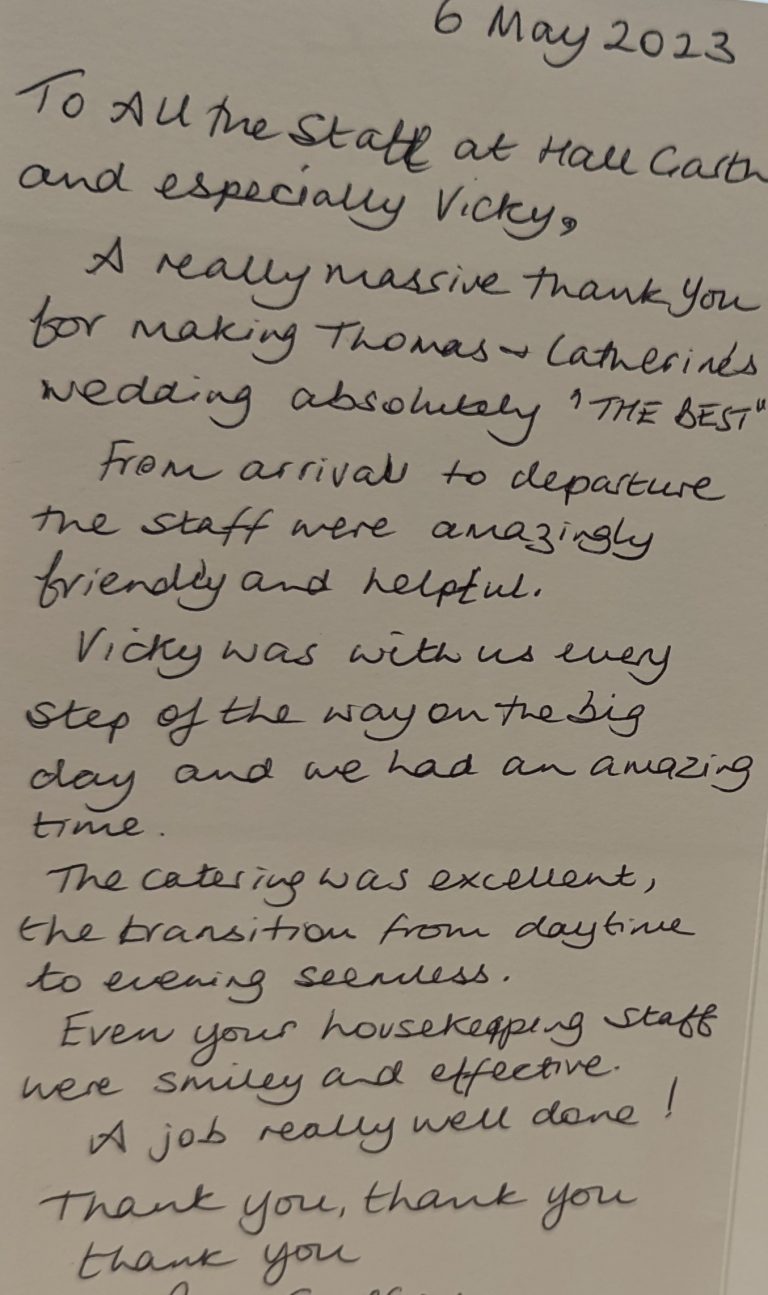 6 May 2023
To All the Staff at Hall Garth
and especially Vicky,
A really massive thank you
for making Thomas + Catherine's
wedding absolutely "THE BEST"
From arrival to departure
the staff were amazingly
friendly and helpful.
Vicky was with us every
step of the way on the big
day and we had an amazing
time.
The catering was excellent,
the transition from daytime
to evening seemless.
Even your housekeeping staff
were smiley and effective.
A job really well done!
Thank you, thank you
thank you